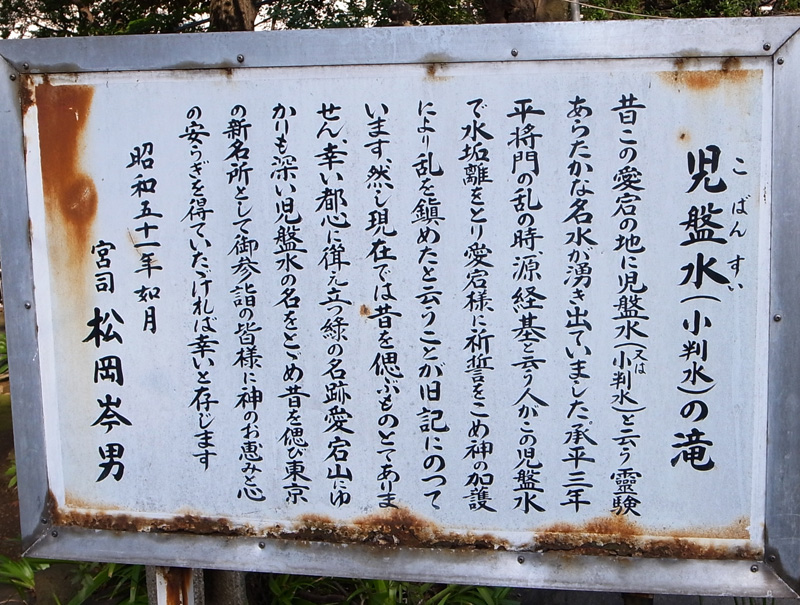 児盤水(小判水)の滝
こばんすい
昔この愛宕の地に児盤水(又は小判水)と云う靈験
あらたかな名水が湧き出ていました。承平三年
平将門の乱の時、源経基と云う人がこの児盤水
で水垢離をとり愛宕様に祈誓をこめ神の加護
により乱を鎮めたと云うことが旧記にのつて
います。然し現在では昔を偲ぶものとてありま
せん、幸い都心に聳え立つ緑の名跡愛宕山にゆ
かりも深い児盤水の名をとゞめ昔を偲び東京
の新名所として御参詣の皆様に神のお恵みと心
の安らぎを得ていたゞければ幸いと存じます
昭和五十一年如月
宮司 松岡岑男